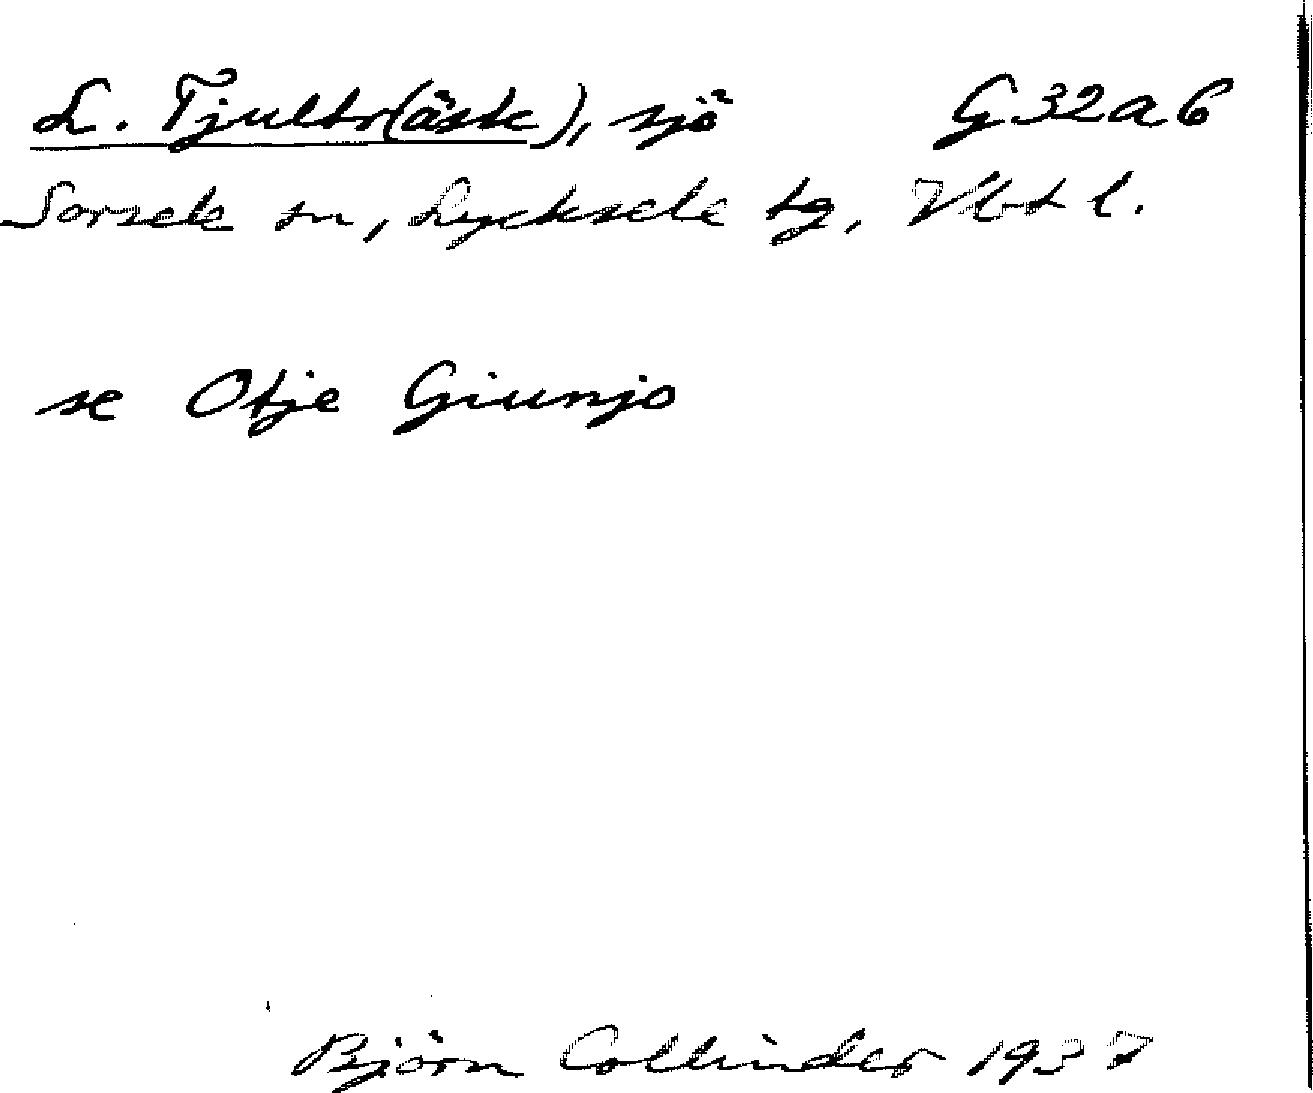 L. Tjultr(äske), sjö G32a6
Sorsele sn, Lycksele tg, Vbtl.
se Otje Giunjo
Björn Collinder 1937